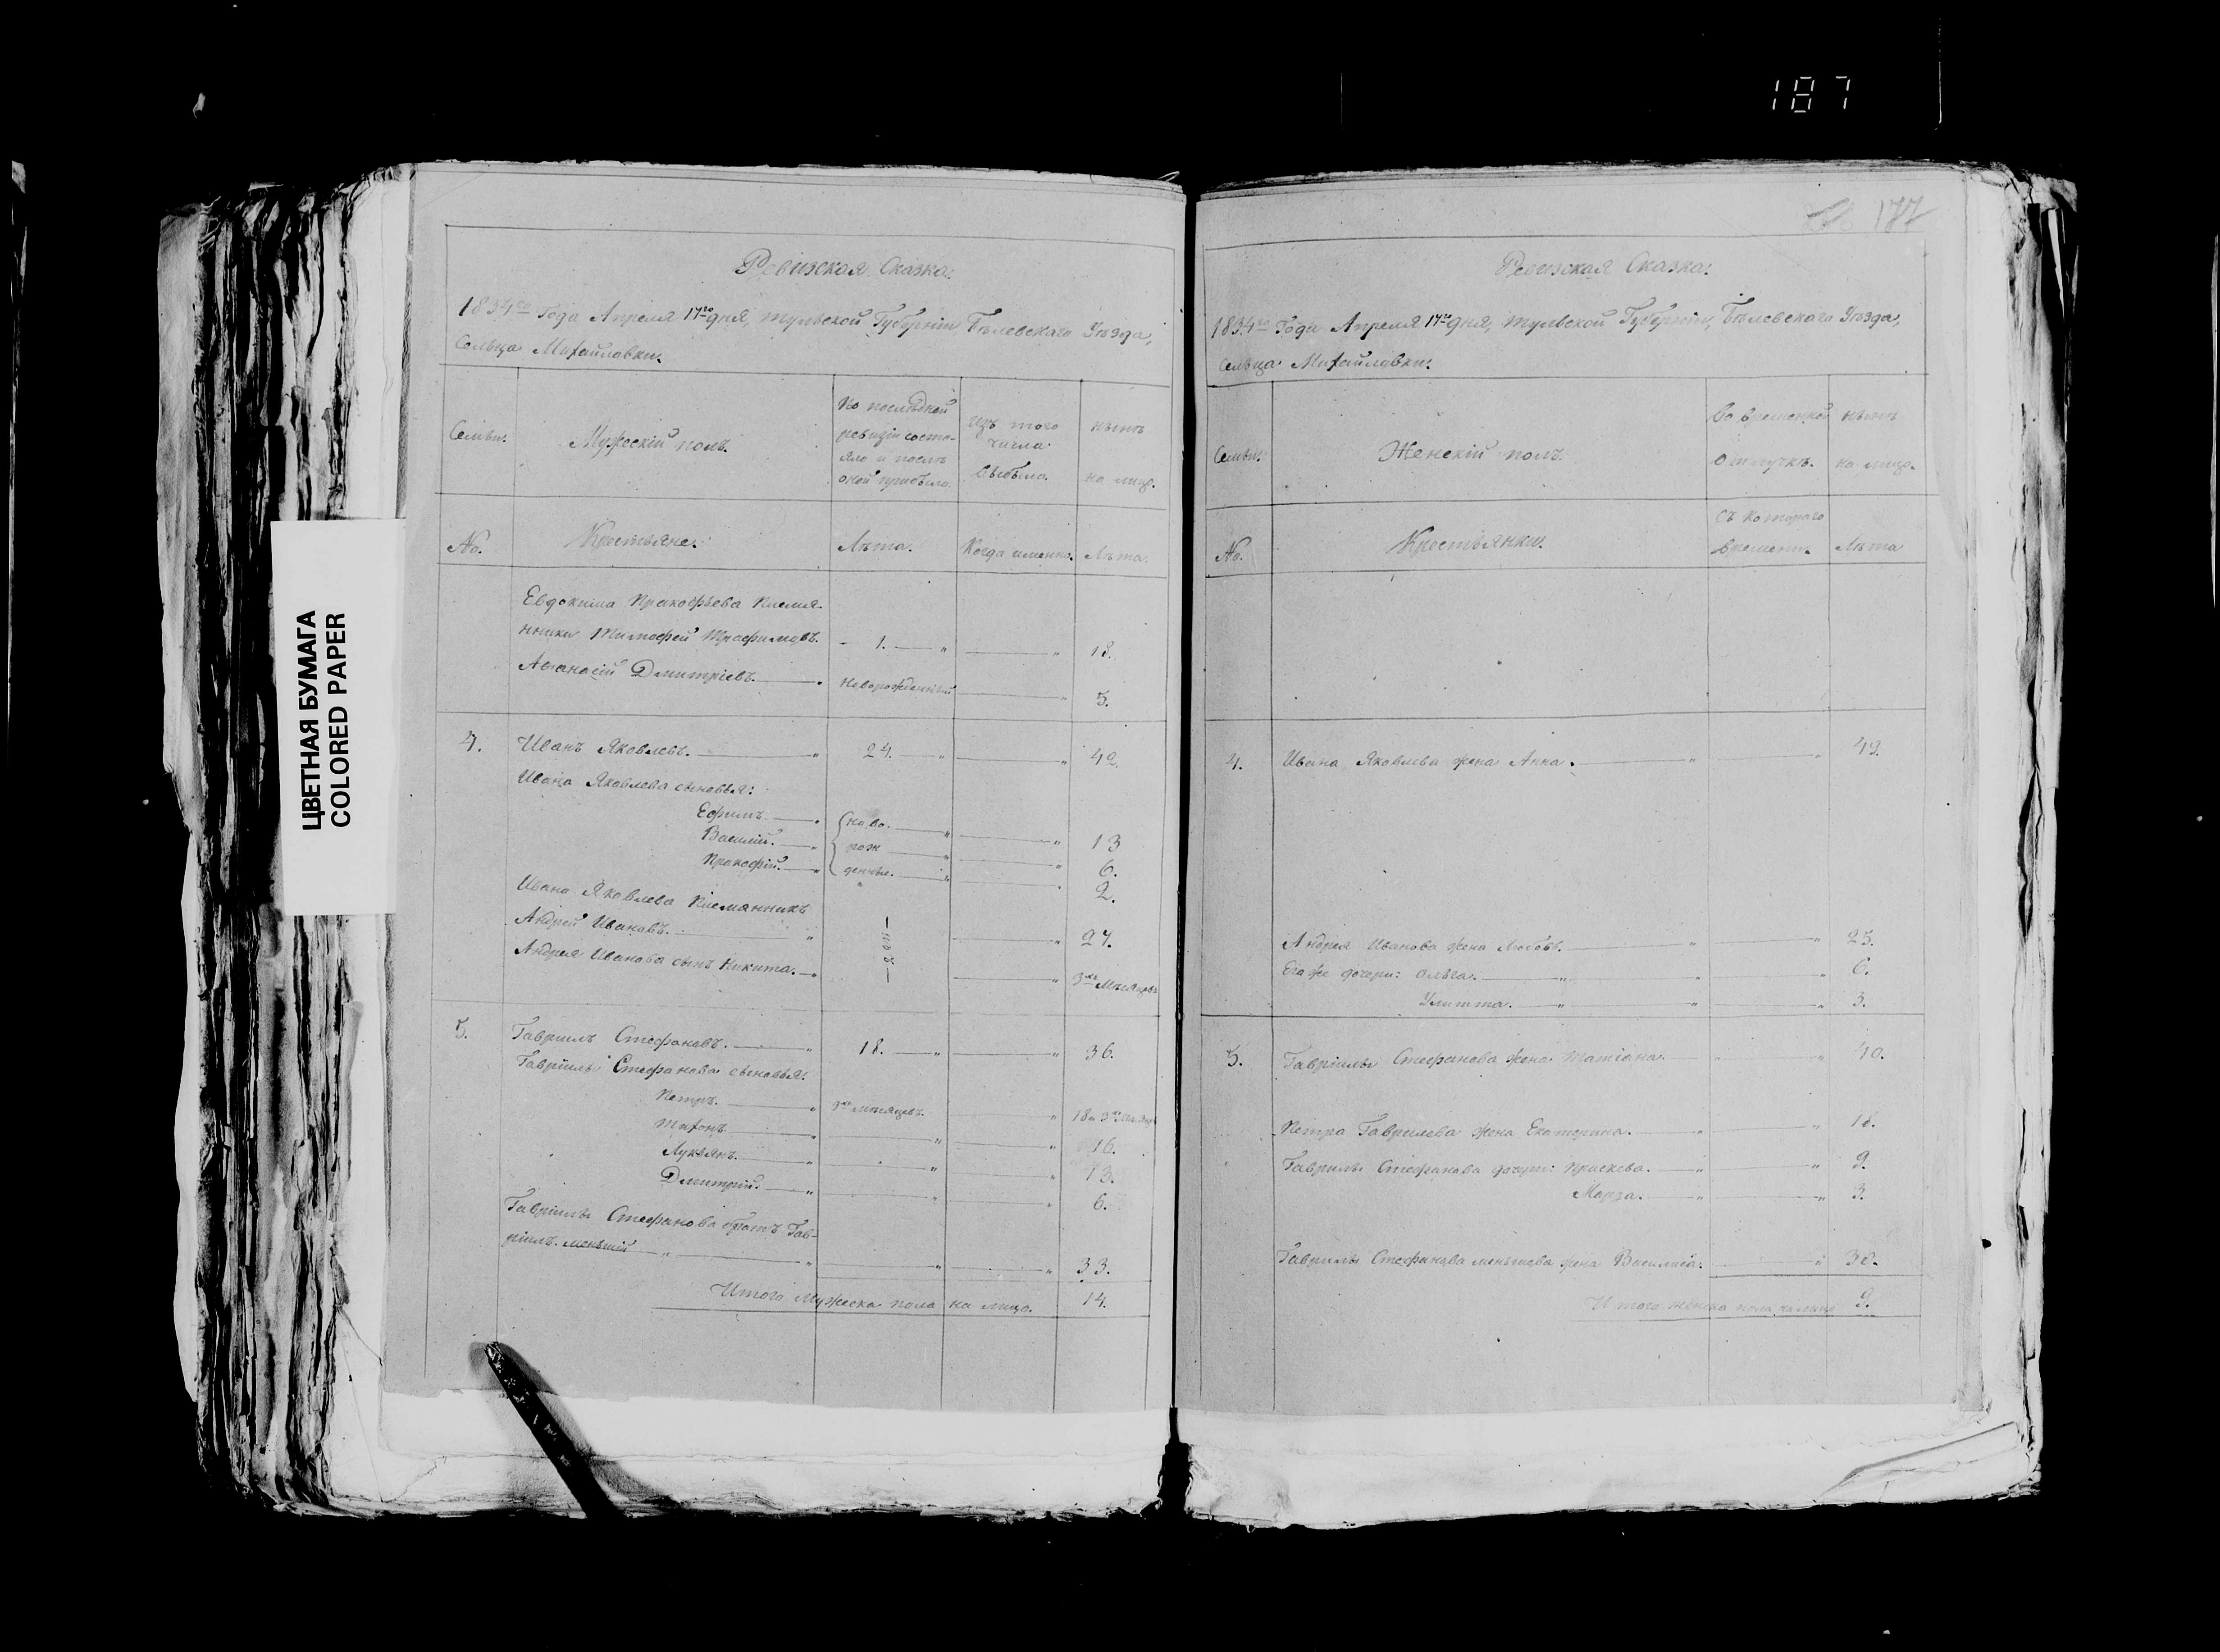 187
ЦВЕТНАЯ БУМАГА
COLORED PAPER
Ревизская Сказка:
1834го Года Апреля 17го дня, Тульской Губерніи Бѣлевскаго Уѣзда,
Сельца Михайловки.
Семьи.
Мужескій полъ.
По послѣдней
ревизіи состо-
яло и послѣ
оной прибыло.
Изъ того
числа
выбыло.
нынѣ
на лицо.
No.
Крестьяне.
Лѣта.
Когда именно.
Лѣта.
Евдокима Пракофьева Племя-
нники Тимофей Трофимовъ. 1. 18.
Афанасій Дмитріевъ. Новорожденный 5.
4. Иванъ Яковлевъ. 24. 42.
Ивана Яковлева сыновья:
Ефимъ. ново. 13
Василій. рож 6.
Пракофій. денные. 2.
Ивана Яковлева Племянникъ
Андрей Ивановъ. 27.
Андрея Иванова сынъ Никита. 3хъ Мѣсяцовъ
5. Гаврилъ Стефановъ. 18. 36.
Гаврилы Стефанова сыновья:
Петръ. Мѣсяцевъ. 18
Тихонъ 16.
Лукьянъ. 13.
Дмитрій. 6.
Гаврилы Стефанова братъ Гав-
рилъ меньшій 33.
Итого Мужеска пола на лицо. 14.
177
Ревизская Сказка:
1834го Года Апреля 17го дня, Тульской Губерніи, Бѣлевскаго Уѣзда,
Сельца Михайловки.
Семьи.
Женскій полъ.
Во временной
отлучкѣ.
нынѣ
на лицо.
No.
Крестьянки.
Съ котораго
времени.
Лѣта
4. Ивана Яковлева жена Анна. 49.
Андрея Иванова жена Любовь. 25.
Его же дочери: Ольга. 6.
Улитта. 3.
5. Гаврилы Стефанова жена Татіана. 40.
Петра Гаврилева жена Екатерина. 18.
Гаврилы Стефанова дочери: Праскева. 9.
Марфа. 3.
Гаврилы Стефанова меньшова жена Василиса. 30.
Итого женска пола на лицо 9.